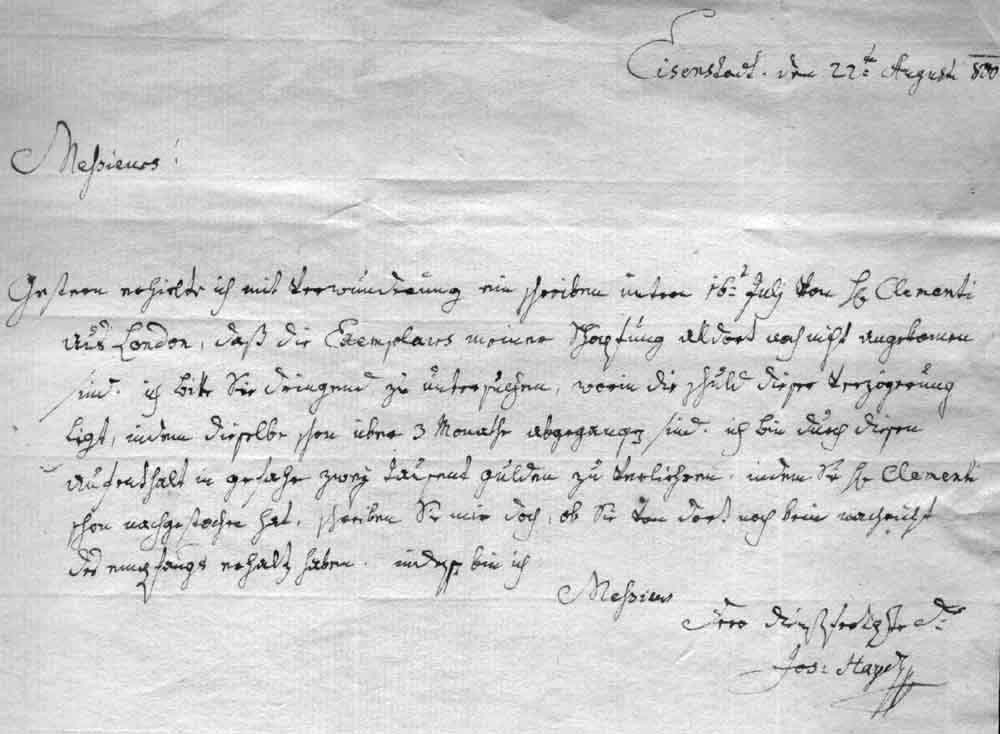 Eisenstadt. den 22ten Augusti 800
Messieurs!
Gestern erhielte ich mit Verwunderung ein schreiben untern 16ten Julj von H. Clementi
aus London, daß die Exemplairs meiner Schöpfung aldort noch nicht angekomen
sind. ich bitte Sie dringend zu untersuchen, worin die schuld dieser Verzögerung
ligt, indem dieselbe schon über 3 Monathe abgegangen sind. ich bin durch diesen
aufenthalt in gefahr zwey tausent gulden zu verliehren. indem Sie H. Clementi
schon nachgestochen hat. schreiben Sie mir doch, ob Sie von dort noch kein nachricht
des empfangs erhalten haben. indessen bin ich
Messieurs
Dero dienstfertigster Dr
Jos: Haydn